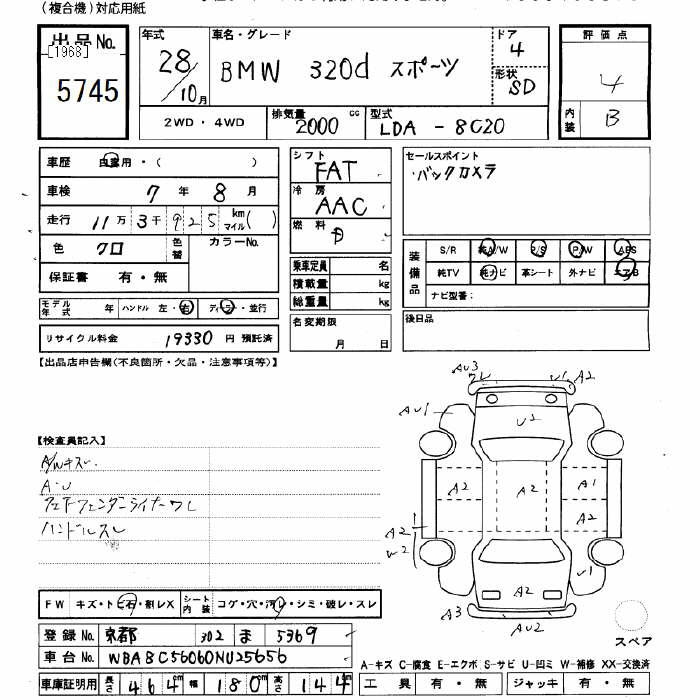 (複合機)対応用紙
出品No. [1968] 5745
年式 28/10月
車名・グレード BMW 320d スポーツ
ドア 4
形状 SD
評価点 4
内装 B
2WD・4WD
排気量 2000 cc
型式 LDA - 8C20
車歴 自家用・( )
車検 7年 8月
走行 11万3千925 km マイル( )
色 クロ 色替 カラーNo.
保証書 有・無
シフト FAT
冷房 AAC
燃料
乗車定員 名
積載量 kg
総重量 kg
セールスポイント
・バックカメラ
装備品
S/R 純A/W P/S P/W ABS
純TV 純ナビ 革シート 外ナビ エアB
ナビ型番:
モデル年式 年 ハンドル 左・右 ディーラー・並行
リサイクル料金 19330 円 預託済
名変期限 月 日
後日品
【出品店申告欄(不良箇所・欠品・注意事項等)】
AU3 ワレ U1 A2
AU1 U2
【検査員記入】
A/Wキズ
A・U
フェンダーライナーワレ
ハンドルスレ
A2 A2 A1
A2
A2
W2
U1
A2
A3 AU2
スペア
FW キズ・トビ石・割レX シート内装 コゲ・穴・汚レ・シミ・破レ・スレ
登録No. 京都 302 ま 5369
車台No. WBA8C56060NU25656
A-キズ C-腐食 E-エクボ S-サビ U-凹ミ W-補修 XX-交換済
車庫証明用 長さ 464 幅 180 高さ 144
工具 有・無 ジャッキ 有・無